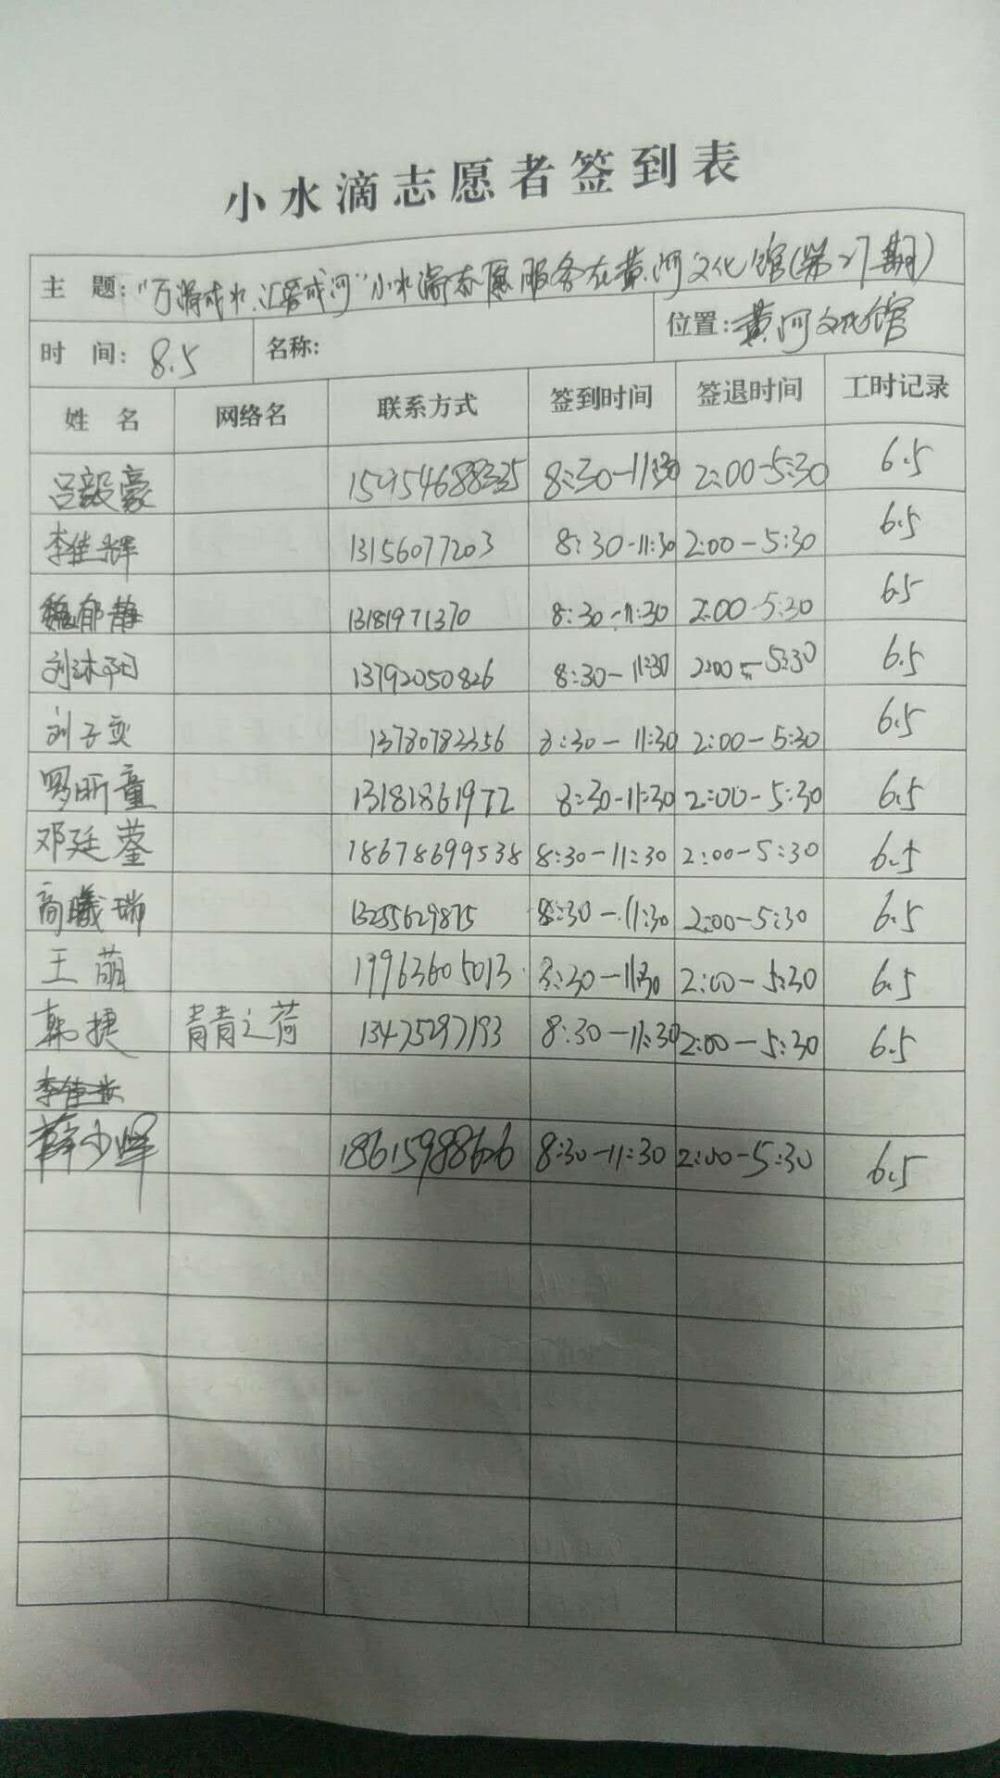 小水滴志愿者签到表
主 题：“万滴成水、汇聚成河”小水滴志愿服务在黄河文化馆(第27期)
时 间：8.5 名称： 位置：黄河文化馆
姓 名 网络名 联系方式 签到时间 签退时间 工时记录
吕毅豪 15954688335 8:30-11:30 2:00-5:30 6.5
李佳辉 13156077203 8:30-11:30 2:00-5:30 6.5
魏郁静 13181971370 8:30-11:30 2:00-5:30 6.5
刘沐阳 13792050826 8:30-11:30 2:00-5:30 6.5
刘子奕 13780783356 8:30-11:30 2:00-5:30 6.5
罗昕童 13181861972 8:30-11:30 2:00-5:30 6.5
邓廷蓥 18678699538 8:30-11:30 2:00-5:30 6.5
高曦瑞 13255629875 8:30-11:30 2:00-5:30 6.5
王萌 19963605013 8:30-11:30 2:00-5:30 6.5
韩捷 青青之荷 13475297193 8:30-11:30 2:00-5:30 6.5
薛少峰 18615988626 8:30-11:30 2:00-5:30 6.5